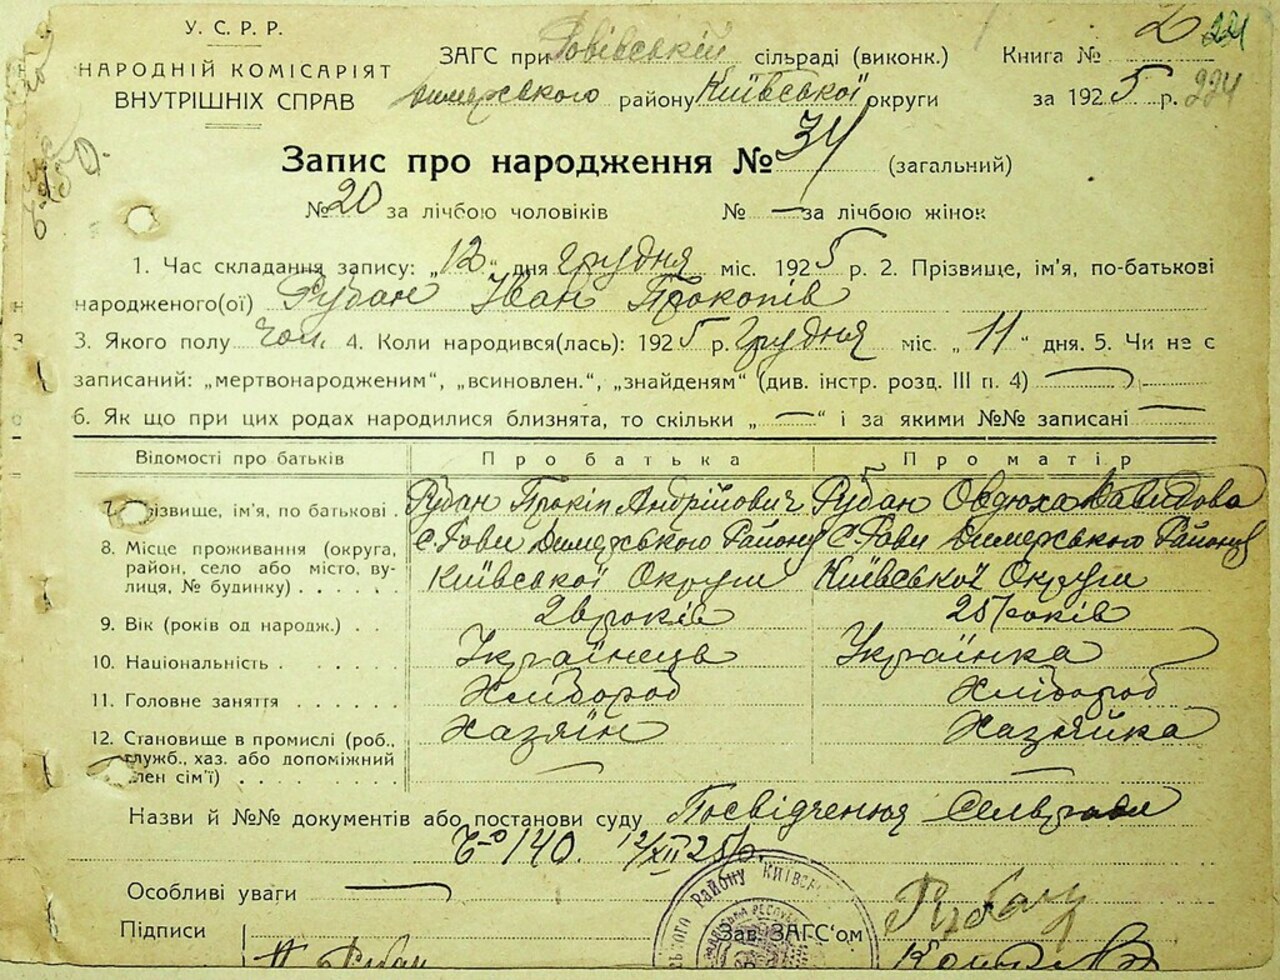 У. С. Р. Р.
НАРОДНІЙ КОМІСАРІЯТ
ВНУТРІШНІХ СПРАВ
ЗАГС при Ровівській сільраді (виконк.)
Димерського району Київської округи
Книга № 2 224
за 1925 р. 224
Запис про народження № 34 (загальний)
№ 20 за лічбою чоловіків № — за лічбою жінок
1. Час складання запису: „12“ дня грудня міс. 1925 р. 2. Прізвище, ім'я, по-батькові
народженого(ої) Рубан Іван Прокопів
3. Якого полу чол. 4. Коли народився(лась): 1925 р. Грудня міс. „11“ дня. 5. Чи не є
записаний: „мертвонародженим“, „всиновлен.“, „знайденям“ (див. інстр. розд. III п. 4) —
6. Як що при цих родах народилися близнята, то скільки „—“ і за якими №№ записані —
Відомості про батьків Про батька Про матір
7. Прізвище, ім'я, по батькові . Рубан Прокіп Андрійович Рубан Овдюха Давидова
8. Місце проживання (округа, с. Рови Димерського Району С. Рови Димерського Району
район, село або місто, ву-
лиця, № будинку) . . . . . Київської Округи Київської Округи
9. Вік (років од народж.) . . 28 років 25 років
10. Національність . . . . . Українець Українка
11. Головне заняття . . . . . Хлібороб Хлібороб
12. Становище в промислі (роб., Хазяїн Хазяйка
служб., хаз. або допоміжний
член сім'ї) . . . . . . . — —
Назви й №№ документів або постанови суду Посвідчення Сельради
№ 140. 12/XII 25 р.
Особливі уваги —
РАЙОНУ КИЇВСЬ
Підписи Зав. ЗАГС'ом Рубан
П Рубан